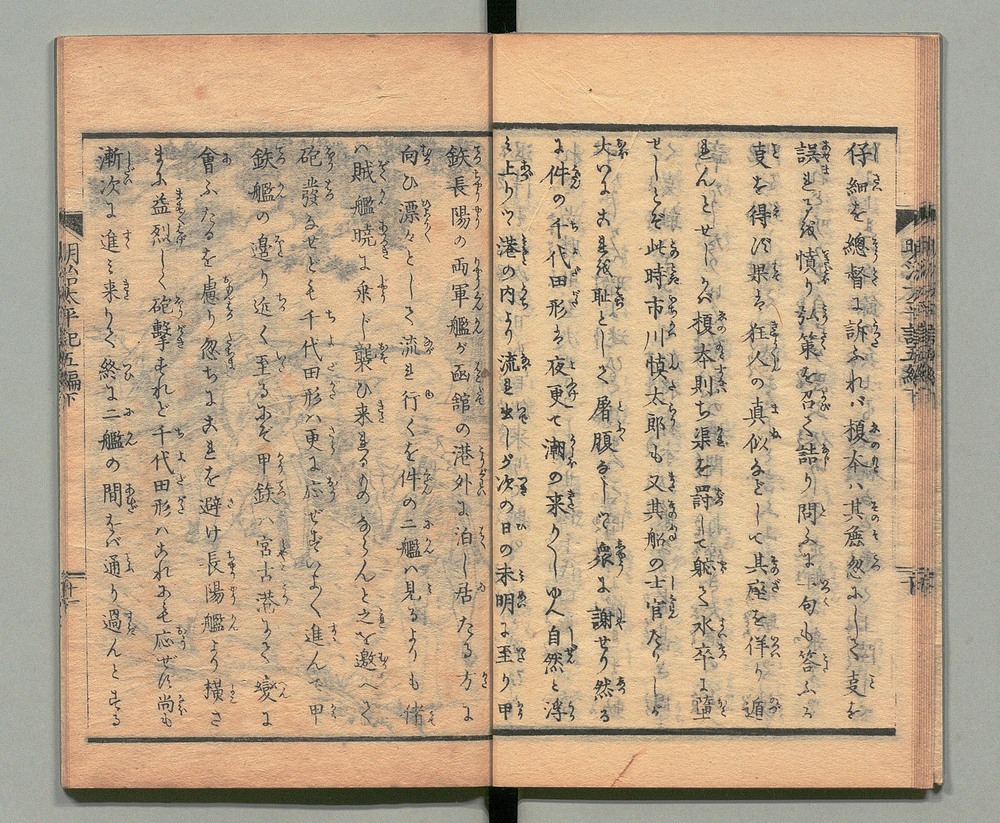 仔細を總督に訴ふれバ榎本ハ其麁忽にして支を
誤りしを憤り弘策を召て詰り問ふに一句も答ふる
支を得ず果は狂人の真似などして其座を佯り遁
れんとせしかバ榎本則ち渠を罰して躬て水卒に墮
せしとぞ此時市川慎太郎も又其船の士官たりしが
大いにこれを恥として屠腹なして衆に謝せり然る
に件の千代田形は夜更て潮の来りしゆへ自然と浮
み上りツヽ港の内より流れ出しが次の日の未明に至り甲
鉄長陽の両軍艦が函舘の港外に泊し居たる方に
向ひ漂々として流れ行くを件の二艦ハ見るよりも偖
ハ賊艦暁に乗じ襲ひ来れるものならんと之を邀へて
砲發なせども千代田形ハ更に応ぜずいよ〱進んで甲
鉄艦の邉り近く至るにぞ甲鉄ハ宮古港にて變に
會ふたるを慮り忽ちこれを避け長陽艦より撗さ
まに益烈しく砲撃すれど千代田形ハこれにも応ぜず尚も
漸次に進ミ来りて終に二艦の間をバ通り過んとする
明治太平記五編下